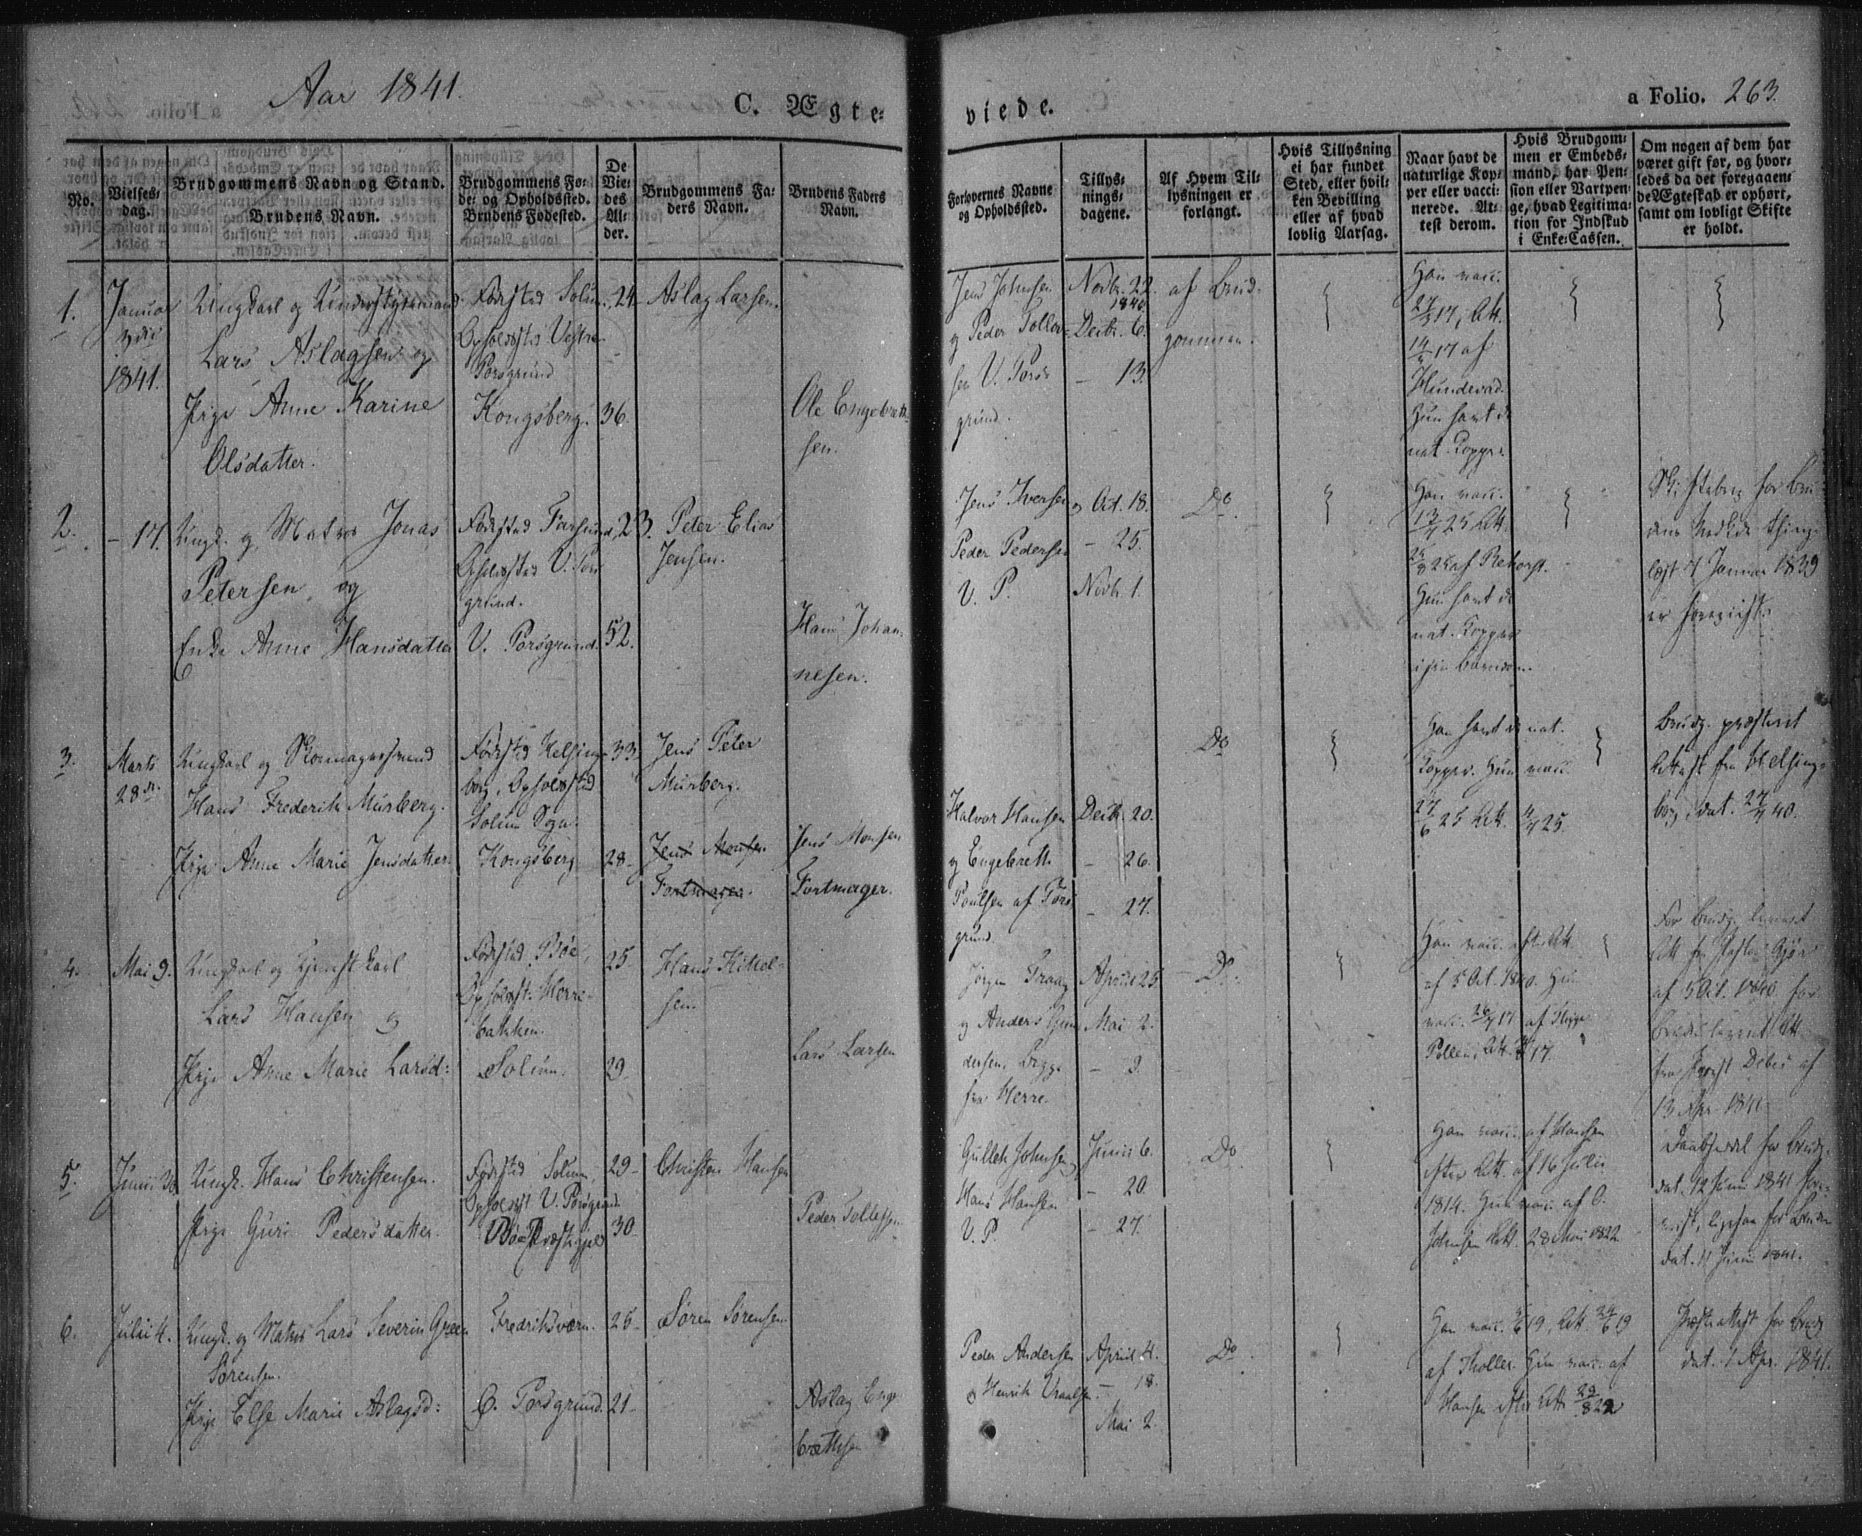 Aar 1841.
C. Ægte=
viede.
a Folio. 263.
No.
Vielses=
dag.
Brudgommens Navn og Stand.
Brudens Navn.
Brudgommens Fø=
de= og Opholdssted.
Brudens Fødested.
De
Vie=
des
Al=
der.
Brudgommens Fa=
ders Navn.
Brudens Faders
Navn.
Forlovernes Navne
og Opholdssted.
Tillys=
nings=
dagene.
Af Hvem Til=
lysningen er
forlangt.
Hvis Tillysning
ei har fundet
Sted, eller hvil=
ken Bevilling
eller af hvad
lovlig Aarsag.
Naar havt de
naturlige Kop=
per eller vacci=
nerede. At=
test derom.
Hvis Brudgom=
men er Embeds=
mand, har Pen=
sion eller Vartpen=
ge, hvad Legitima=
tion for Indskud
i Enke=Cassen.
Om nogen af dem har
været gift før, og hvor=
ledes da det foregaaen=
de Ægteskab er ophørt,
samt om lovligt Skifte
er holdt.
1.
Januar
1841.
Ungkarl og
Lars Aslagsen og
Pige Anne Karine
Olsdatter.
Fødested Solum.
Opholdsted Vestre
Porsgrund
Kongsberg.
24.
36.
Aslag Larsen.
Ole Engebret
sen.
Jens Johnsen
og Peder Tollev=
sen V. Pors=
grund.
Novbr. 22.
1840.
Decbr. 6.
– 13.
af Brud=
gommen.
Han vacc.
17, Att.
17 af
Hun havt de
nat. Kopper.
2.
– 17.
Ungk. og Matros Jonas
Petersen og
Enke Anne Hansdatter
Fødested Farsund,
Opholdsted V. Pors
grund.
V. Porsgrund.
23.
52.
Peter Elias
Jensen.
Hans Johan=
nesen.
Jens Iversen og
Peder Pedersen
V. P.
Oct. 18.
– 25.
Novb. 1.
Do.
Han vacc.
25 Att.
25 af
Hun havt de
nat. Kopper
i sin Barndom.
Skiftebrev for Bru=
dens
læst 7 Januar 1839
er forevist.
3.
Marts
28de.
Ungkarl og Skomagersvend
Hans Frederik Murberg.
Pige Anne Marie Jensdatter.
Fødested Helsing=
borg, Opholdsted
Solum Sogn.
Kongsberg
33.
28.
Jens Peter
Murberg.
Jens Monsen
Fortmager.
Jens Monsen
Fortmager.
Halvor Hansen
og Engebrett
Poulsen af Pors
grund.
Decbr. 20.
– 26.
– 27.
Do
Han havt de nat.
Kopper. Hun vacc.
27/6 25 Att. 25.
Brudg. præsteret
Attest fra Helsing=
borg, dat. 40.
4.
Mai 9.
Ungkarl og Tjenestkarl
Lars Hansen og
Pige Anne Marie Larsd:
Fødested Bøe,
Opholdst. Herre=
bakken.
Solum.
25.
29.
Hans Kittel=
sen.
Lars Larsen
Jørgen Traag
og Anders Gun
dersen, begge
fra Herre.
April 25.
Mai 2.
– 9.
Do.
Han vacc. efter Att.
af 5 Oct. 1840. Hun
vacc. 17 af
Att. 17.
For Brudg. leveret
Att. fra
af 5 Oct. 1840, for
Bruden leveret Att
fra Provst Debes af
13 Apr. 1841.
5.
Junii 30
Ungk. Hans Christensen.
Pige Guri Pedersdatter.
Fødested Solum,
Opholdst V. Porsgrund.
Bøe Præstegjeld
29.
30.
Christen Hansen
Peder Tollefsen
Gullek Johnsen,
Hans Hansen
V. P.
Junii 6.
– 20.
– 27.
Do
Han vacc. af Hansen
efter Att. af 16 Julii
1814. Hun vacc. af O.
Johnsen Att. 28 Mai 1822.
Daabsseddel for Brudg.
dat. 12 Juni 1841 fore=
vist, ligesaa for Bruden
dat. 11 Juni 1841.
6.
Julii 4.
Ungk. og Matros Lars Severin Green
Sørensen.
Pige Else Marie Aslagsd:
Fredriksværn.
Ø. Porsgrund.
25.
21.
Søren Sørensen
Aslag Enge
brethsen
Peder Andersen
og Henrik
April 4.
– 18.
Mai 2.
Do.
Han vacc. 19, Att. 19
af Møller. Hun vacc. af
Hansen efter Att. 29/8 22
Præsteattest for Brudg.
dat. 1 Apr. 1841.